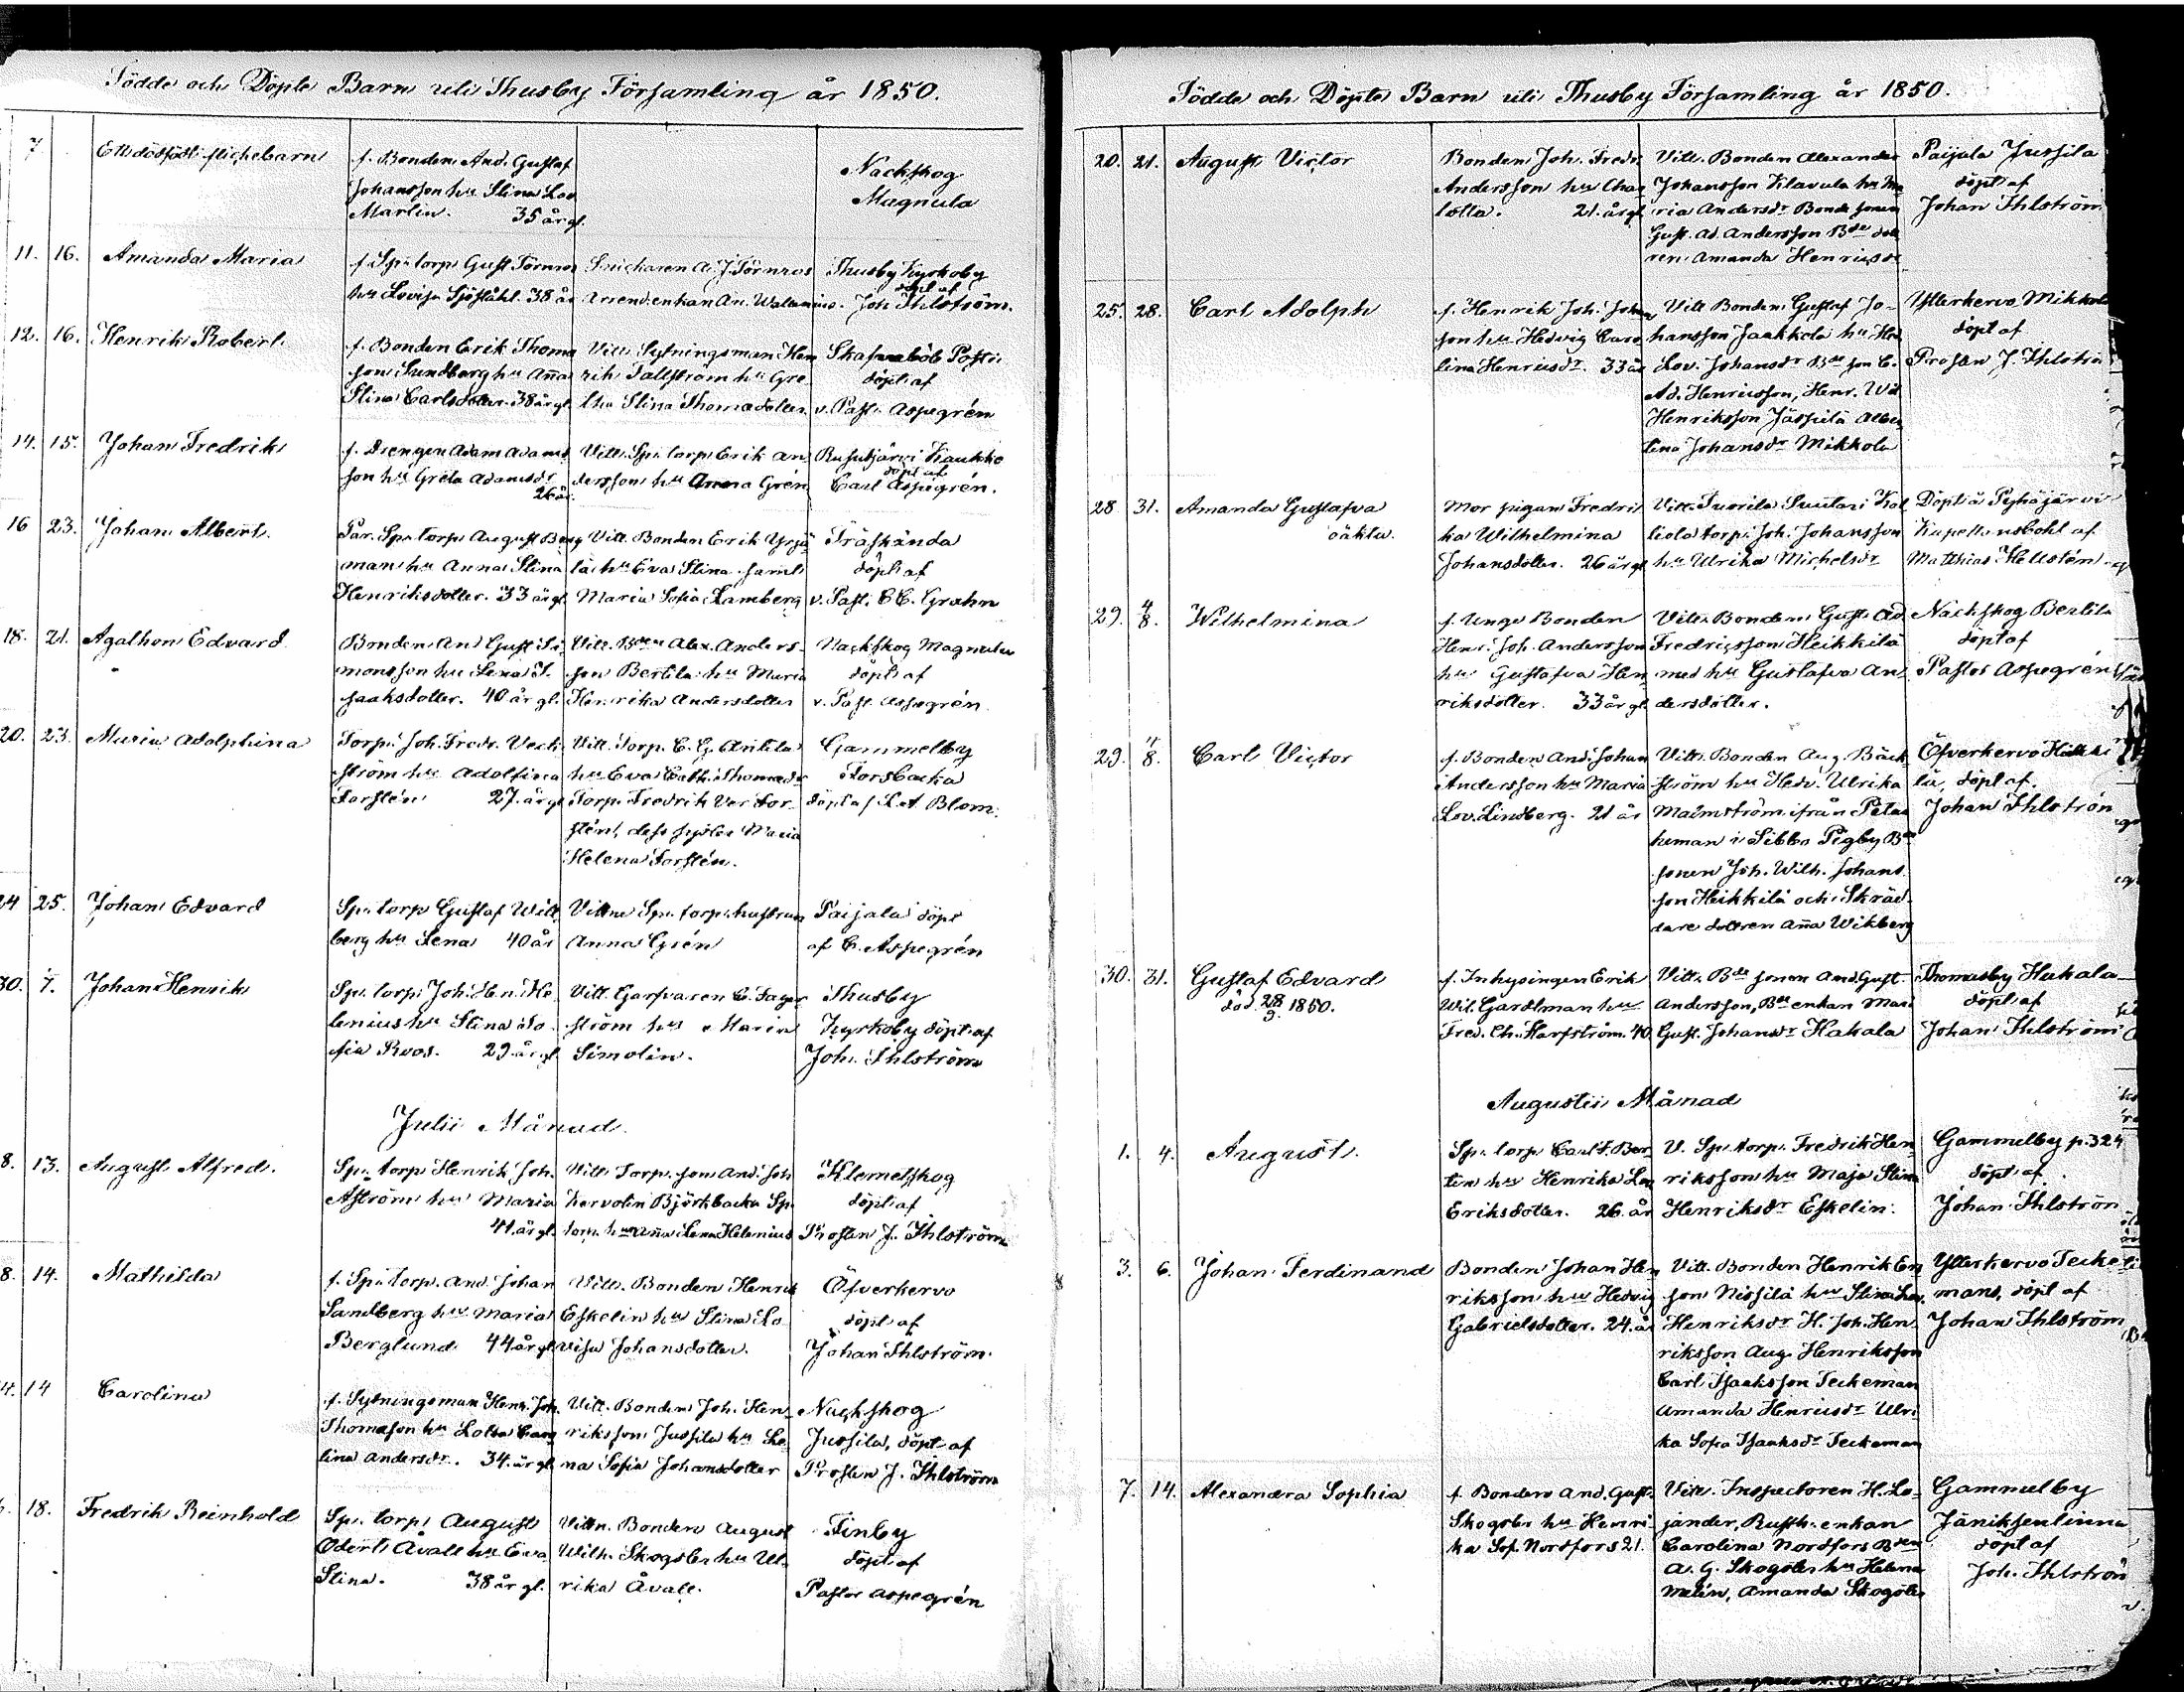 Födde och Döpte Barn uti Thusby Församling år 1850.
7 Ett dödfödt flickebarn
f. Bonden And. Gustaf
Johansson hu Stina Lov
Marlin. 35 år gl.
Nackskog
Magnula
11. 16. Amanda Maria
f. Sp: torp Gust Törnros
hu Lovisa Sjöståhl. 38 år
Snickaren A J Törnros
Arrend. enkan An.
Thusby Kyrkoby
döpt af
Joh Ihlström.
12. 16. Henrik Robert
f. Bonden Erik Thoma
son Sundberg hu Anna
Stina Carlsdotter. 38 år gl.
Vitt. Sytningsman Hen
rik Tallström hu Gre
tha Stina Thomedotter
Skafvaböle Postis
döpt af
v. Past. Aspegrén
14. 15. Johan Fredrik
f. Drengen Adam Adams
son hu Greta Adamsdr
26 år.
Vitt. Sp: torp Erik An
dersson hu Anna Grén
Rusutjärvi Kaukko
döpt af
Carl Aspegrén.
16 23. Johan Albert.
Par. Sp: torp August Berg
man hu Anna Stina
Henriksdotter. 33 år gl
Vitt. Bonden Erik Yrjä
lä hu Eva Stina samt
Maria Sofia Lamberg
Träskända
döpt af
v. Past. C C. Grahn
18. 21. Agathon Edvard
Bonden And Gust Si
monsson hu Lena I
saaksdotter. 40 år gl.
Vitt. Bden Alex. Anders
son Bertila hu Maria
Henrika Andersdotter
Nackskog Magnula
döpt af
v. Past. Aspegrén
20. 23. Maria Adolphina
Torp: Joh. Fredr. Veck
ström hu Adolfina
Forstén 27. år gl
Vitt. Torp. C. G. Antila
hu Eva Cath. Thomedr
Torp. Fredrik Ver For
stén, dess syster Maria
Helena Forstén.
Gammelby
Forsbacka
döpt af L. A. Blom.
24 25. Johan Edvard
Sp: torp Gustaf Witt
berg hu Lena 40 år
Vittne Sp: torp: hustrun
Anna Grén
Paijala döpt
af C. Aspegrén
30. 7. Johan Henrik
Sp: torp: Joh. Hen. He
lenius hu Stina So
fia Roos. 29 år gl.
Vitt. Garfvaren C. Lager
ström hu Maria
Simolin.
Thusby
Kyrkoby döpt af
Joh. Ihlström
Julii Månad.
8. 13. August Alfred.
Sp: torp Henrik Joh.
Åström hu Maria
41. år gl.
Vitt. Torp. son And. Joh
Kervolin Björkbacka Sp.
torp. hu Anna Lena Helenius
Klemetskog
döpt af
Prosten J. Ihlström
8. 14. Mathilda
f. Sp: torp. And. Johan
Sandberg hu Maria
Berglund 44 år gl
Vitt. Bonden Henrik
Eskelin hu Stina Lo
visa Johansdotter.
Öfverkervo
döpt af
Johan Ihlström.
14. 14 Carolina
f. Sytningsman Henr. Joh.
Thomasson hu Lotta Caro
lina Andersdr. 34. år gl
Vitt. Bonden Joh. Hen
riksson Jussila hu Le
na Sofia Johansdotter
Nackskog
Jussila, döpt af
Prosten J. Ihlström
18. Fredrik Reinhold
Sp: torp: August
Odert Åvall hu Eva
Stina. 38 år gl.
Vittn. Bonden August
Wilh. Skogster hu Ul
rika Åvall.
Finby
döpt af
Pastor Aspegrén
Födde och Döpte Barn uti Thusby Församling år 1850.
20. 21. August Victor
Bonden Joh. Fredr
Andersson hu Char
lotta. 21. år gl
Vitt. Bonden Alexander
Johansson Klavula hu Ma
ria Andersdr Bonde sonen
Gust. Ad. Andersson Bde dott
ren Amanda Henricsdr
Paijala Jussila
döpt af
Johan Ihlström
25. 28. Carl Adolph
f. Henrik Joh. Johan
son hu Hedvig Caro
lina Henricsdr. 33 år
Vitt Bonden Gustaf Jo-
hansson Jaakkola hu Hed
Lov. Johansdr Bde son C.
Ad. Henricsson, Henr. Wil
Henriksson Jässilä Alber
tina Johansdr Mikkola
Ytterkervo Mikkola
döpt af
Prosten J. Ihlströ
28 31. Amanda Gustafva
oäkta.
Mor pigan Fredri
ka Wilhelmina
Johansdotter. 26 år gl
Vitt. Tuorila Suutari Kol
liola torp: Joh. Johansson
hu Ulrika Michelsdr
Döpt i Pyhäjärvi
Kapellansbohl af
Matthias Hellstén
29. 4/8. Wilhelmina
f. Unge Bonden
Henr. Joh. Andersson
hu Gustafva Hen
riksdotter. 33 år gl
Vitt. Bonden Gust. Ad
Fredricsson Heikkilä
med hu Gustafva An
dersdotter.
Nackskog Bertila
döpt af
Pastor Aspegrén
29. 4/8. Carl Victor
f. Bonden And. Johan
Andersson hu Maria
Lov. Lindberg. 21 år
Vitt. Bonden Aug. Bäck
ström hu Hedv. Ulrika
Malmström ifrån Peta
heman i Sibbo Pigby Bde
sonen Joh. Wilh. Johans
son Heikkilä och Skräd
dare dottren Anna Wikberg
Öfverkervo Heikki
lä, döpt af
Johan Ihlström
30. 31. Gustaf Edvard
död 28/9. 1850.
f. Inhysingen Erik
Wil. Gardtman hu
Fred. Ch. Harfström. 40.
Vitt. Bde sonen And. Gust.
Andersson, Bde enkan Mari
Gust. Johansdr Hakala
Thomasby Hakala
döpt af
Johan Ihlström
Augustii Månad
1. 4. August.
Sp: torp Carl F. Ber
tin hu Henrika Lov
Eriksdotter. 26 år
V. Sp: torp. Fredrik Hen
riksson hu Maja Stina
Henriksdr Eskelin.
Gammelby p. 324
döpt af
Johan Ihlström
3. 6. Johan Ferdinand
Bonden Johan Hen
riksson hu Hedvig
Gabrielsdotter. 24. år
Vitt. Bonden Henrik Er
son Nissilä hu Stina Lov.
Henriksdr H. Joh. Hen
riksson Aug. Henriksson
Carl Isaaksson Teckeman
Amanda Henricsdr Ulri
ka Sofia Isaaksdr Teckeman
Ytterkervo Tecke
mans, döpt af
Johan Ihlström
7. 14. Alexandra Sophia
f. Bonden And. Gust.
Skogster hu Henri
ka Sof. Nordfors 21.
Vitt. Inspectoren H. Lo
jander, Rusth. enkan
Carolina Nordfors Bden
A. G. Skogster hu Helena
Melin, Amanda Skogster
Gammelby
Jäniksenlinna
döpt af
Joh. Ihlström